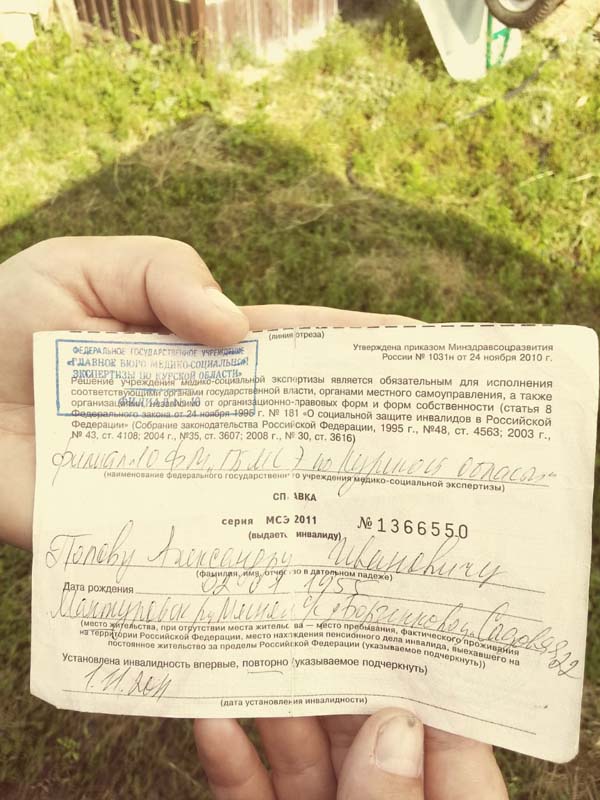 (линия отреза)
Утверждена приказом Минздравсоцразвития
России № 1031н от 24 ноября 2010 г.
ФЕДЕРАЛЬНОЕ ГОСУДАРСТВЕННОЕ УЧРЕЖДЕНИЕ
«ГЛАВНОЕ БЮРО МЕДИКО-СОЦИАЛЬНОЙ
ЭКСПЕРТИЗЫ ПО КУРСКОЙ ОБЛАСТИ»
ФИЛИАЛ № 10
Решение учреждения медико-социальной экспертизы является обязательным для исполнения
соответствующими органами государственной власти, органами местного самоуправления, а также
организациями независимо от организационно-правовых форм и форм собственности (статья 8
Федерального закона от 24 ноября 1995 г. № 181 «О социальной защите инвалидов в Российской
Федерации» (Собрание законодательства Российской Федерации, 1995 г., №48, ст. 4563; 2003 г.,
№ 43, ст. 4108; 2004 г., №35, ст. 3607; 2008 г., № 30, ст. 3616)
филиал 10 ГБ МСЭ по Курской области
(наименование федерального государственного учреждения медико-социальной экспертизы)
СПРАВКА
серия МСЭ 2011 №1366550
(выдается инвалиду)
Попову Александру Ивановичу
(фамилия, имя, отчество в дательном падеже)
Дата рождения 1955
Садовая 22
(место жительства, при отсутствии места жительства — место пребывания, фактического проживания
на территории Российской Федерации, место нахождения пенсионного дела инвалида, выехавшего на
постоянное жительство за пределы Российской Федерации (указываемое подчеркнуть))
Установлена инвалидность впервые, повторно (указываемое подчеркнуть)
1.11.2011
(дата установления инвалидности)